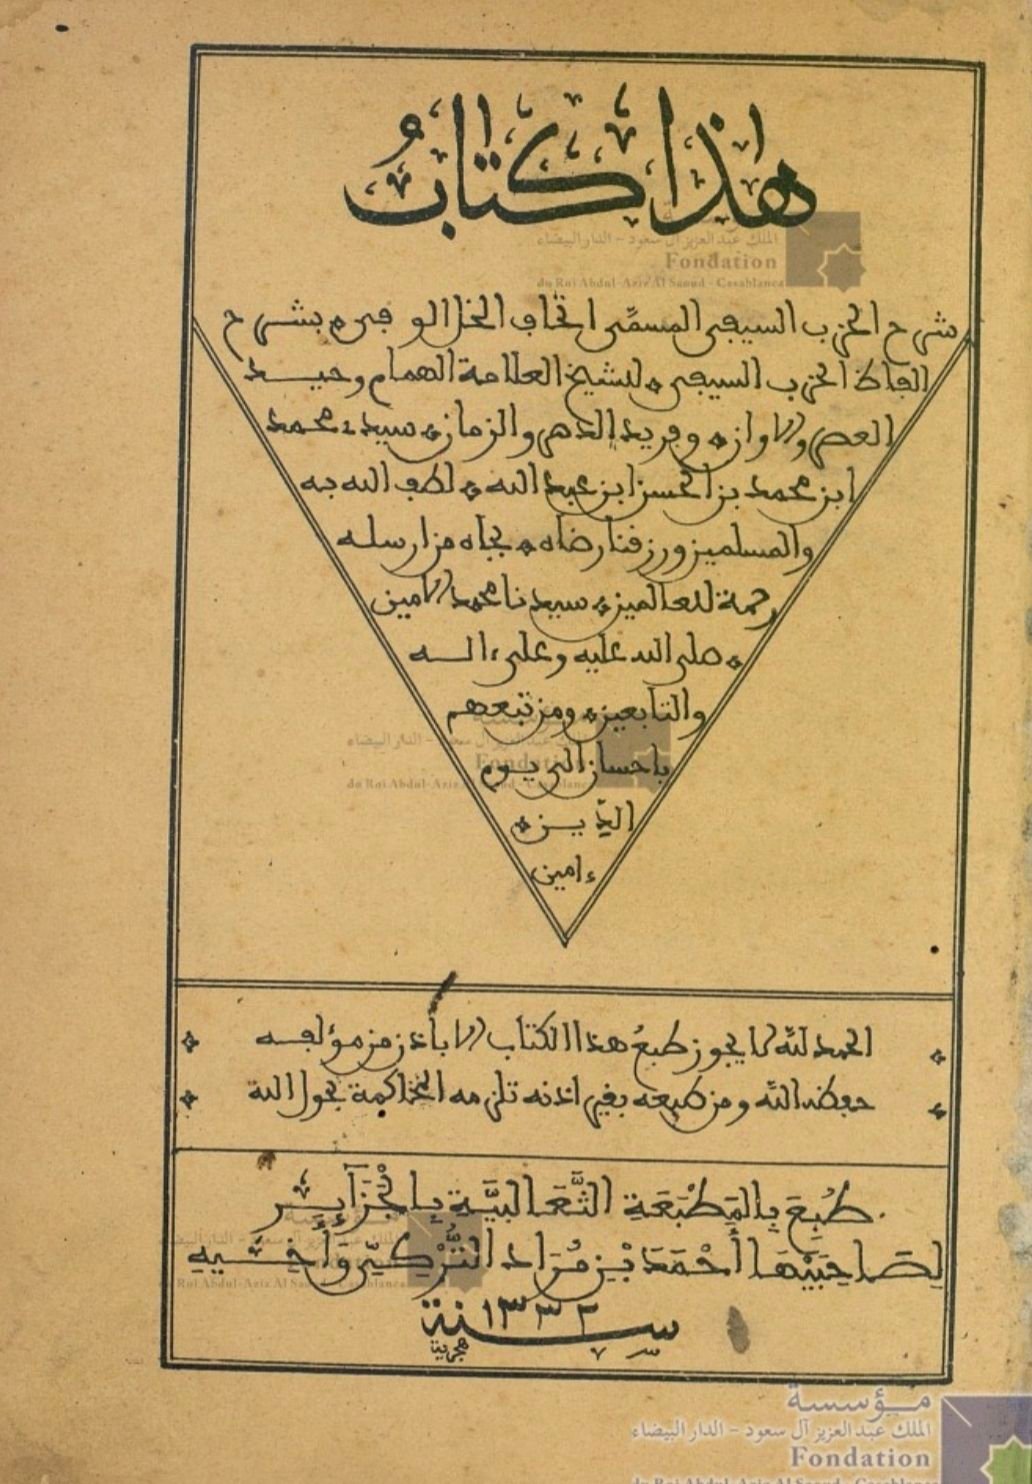 هذا كتاب
شرح الحزب السيفي المسمى اتحاف الخل الوفي ۞ بشرح
الفاظ الحزب السيفي ۞ للشيخ العلامة الهمام وحيد
العصر والاوان ۞ وفريد الدهر والزمان ۞ سيدي محمد
ابن محمد بن الحسن ابن عبد الله ۞ لطف الله به
والمسلمين ورزقنا رضاه ۞ بجاه من ارسله
رحمة للعالمين ۞ سيدنا محمد الامين
۞ صلى الله عليه وعلى ءاله
والتابعين ۞ ومن تبعهم
باحسان الى يوم
الدين ۞
ءامين
۞ الحمد لله لا يجوز طبع هذا الكتاب الا باذن من مؤلفه ۞
۞ حفظه الله ومن طبعه بغير اذنه تلزمه المحاكمة بحول الله ۞
طُبِعَ بِالمَطْبَعَةِ الثَّعَالبِيَّةِ بِالْجَزَآئِرِ
لِصَاحِبَيْهَا أَحْمَدَ بْنِ مُرَاد التُّرْكِيِّ وَأَخِيهِ
سنة ١٣٣٢
هجرية
مؤسسة
الملك عبد العزيز آل سعود - الدار البيضاء
Fondation
du Roi Abdul-Aziz Al Saoud - Casablanca